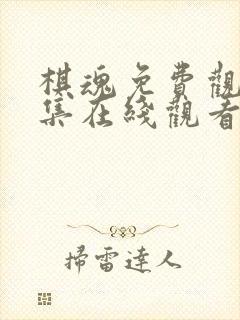 棋魂免費觀
集在綫觀看
掃雷達人